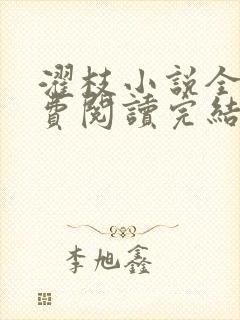 濯枝小說全
費閱讀完結
李旭鑫